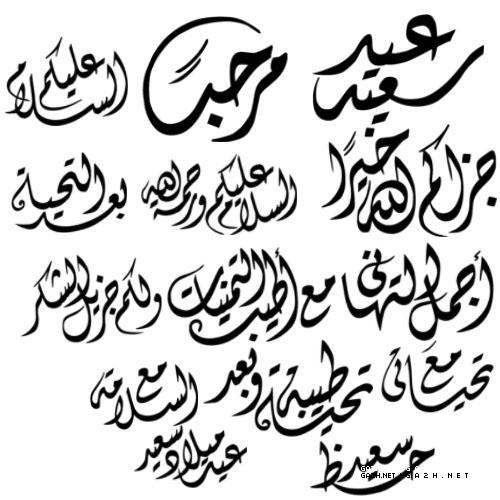 عيد سعيد
مرحبا
السلام عليكم
جزاكم الله خيرًا
السلام عليكم ورحمة الله
بعد التحية
أجمل التهاني
مع أطيب التمنيات
ولكم جزيل الشكر
مع تحياتي
تحية طيبة وبعد
مع السلامة
حظ سعيد
عيد ميلاد سعيد
GA2H.NET